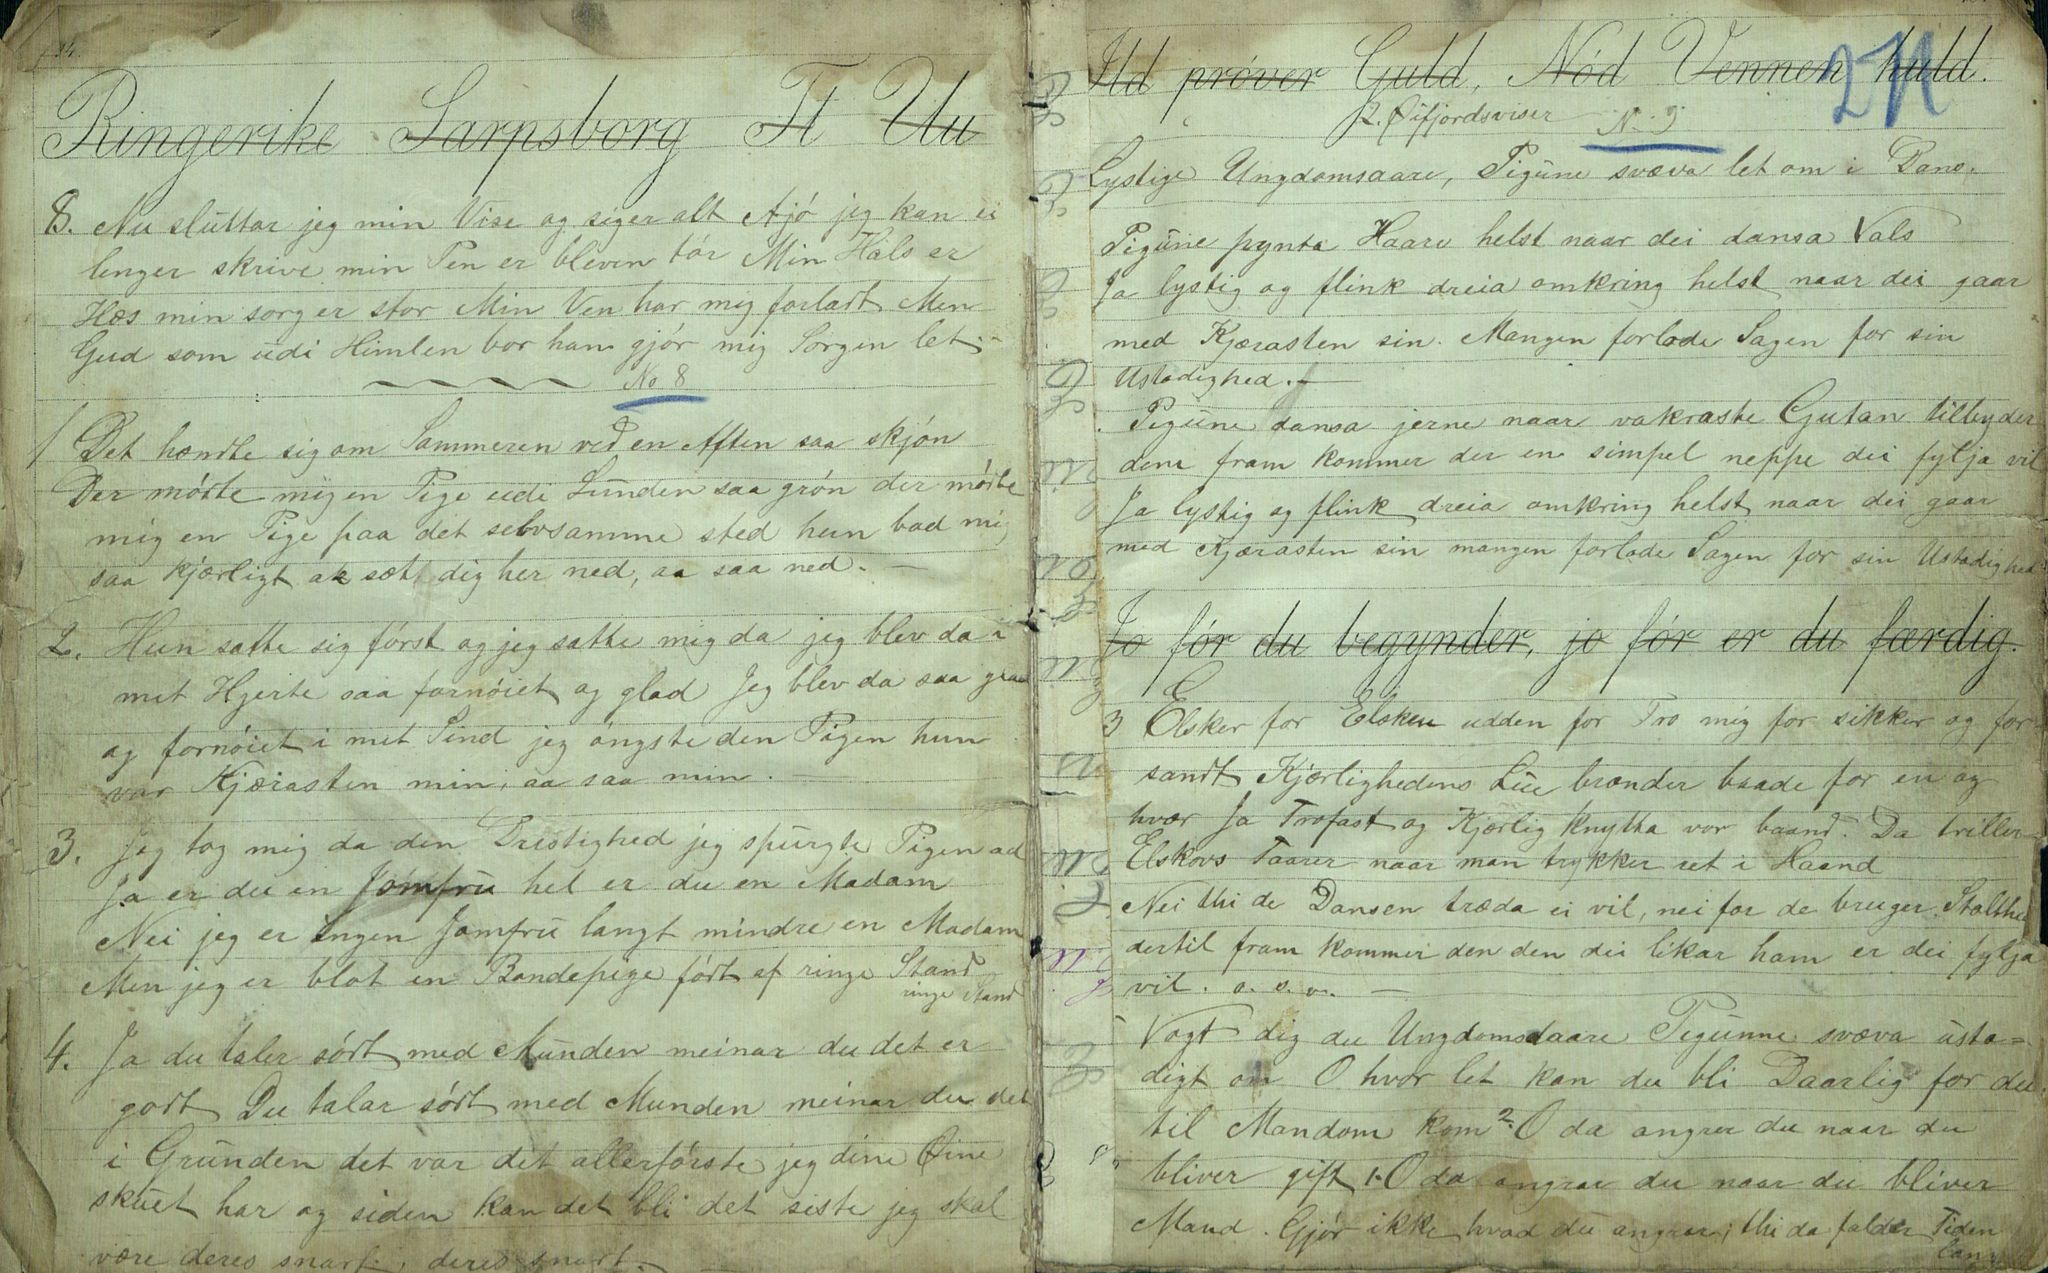 14.
Ringerike Sarpsborg Ft Uu
8. Nu sluttar jeg min Vise og siger alt Ajó jeg kan ei
lenger skrive min Pen er bleven tór Min Hals er
Hæs min sorg er stor Min Ven har mig forladt Men
Gud som udi Himlen bor han gjór mig Sorgen let
No 8
1 Det hændte sig om Sommeren ved en Aften saa skjón
Der módte mig en Pige udi Lunden saa grón der módte
mig en Pige paa det selvsamme sted hun bad mig
saa kjærligt at sætt dig her ned, aa saa ned. —
2. Hun satte sig fórst og jeg satte mig da jeg blev da i
mit Hjerte saa fornóiet og glad Jeg blev da saa glad
og fornóiet i mit Sind jeg óngste den Pigen hun
var Kjærasten min, aa saa min. —
3. Jeg tog mig da den Dristighed jeg spurgte Pigen ad
Ja er du en Jomfru hel er du en Madam
Nei jeg er Ingen Jomfru langt mindre en Madam
Men jeg er blot en Bondepige fódt af ringe Stand
ringe Stand
4. Ja du taler sódt med Munden meinar du det er
godt Du talar sódt med Munden meinar du det
i Grunden det var det allerfórste jeg dine Øine
skuet har og siden kan det bli det siste jeg skal
være deres snart, deres snart. —
Ild próver Guld, Nód Vennen huld.
2. Øifjordsviser No 9
2N
Lystige Ungdomsaare, Pigune svæva let om i Dans.
Pigune pynta Haare helst naar dei dansa Vals
Ja lystig og flink dreia omkring helst naar dei gaar
med Kjærasten sin. Mangen forlode Sagen for sin
Ustadighed. —
Pigune dansa jerne naar vakraste Gutan tilbyder
dem fram kommer der en simpel neppe dei fylja vil
Ja lystig og flink dreia omkring helst naar dei gaar
med Kjærasten sin mangen forlode Sagen for sin Ustadighed
Jo fór du begynder, jo fór er du færdig.
3 Elsker for Elsker udden for Tro mig for sikker og for
sandt Kjærlighedens Lue brænder baade for en og
hvær Ja Trofast og Kjærlig knytta vor baand. Da triller
Elskovs Taarer naar man trykker ret i Haand
Nei thi de Dansen træda ei vil, nei for de bruger Stolthed
dertil fram kommer den den dei likar ham er dei fylja
vil. o. s. v. —
Vogt dig du Ungdomsdaare Pigunne svæva usta=
digt om O hvor let kan du bli Daarlig for du
til Mandom kom 2. O da angrer du naar du
bliver gift 1. O da angrar du naar du bliver
Mand. Gjór ikke hvad du angrar, thi da falder Tiden
lang